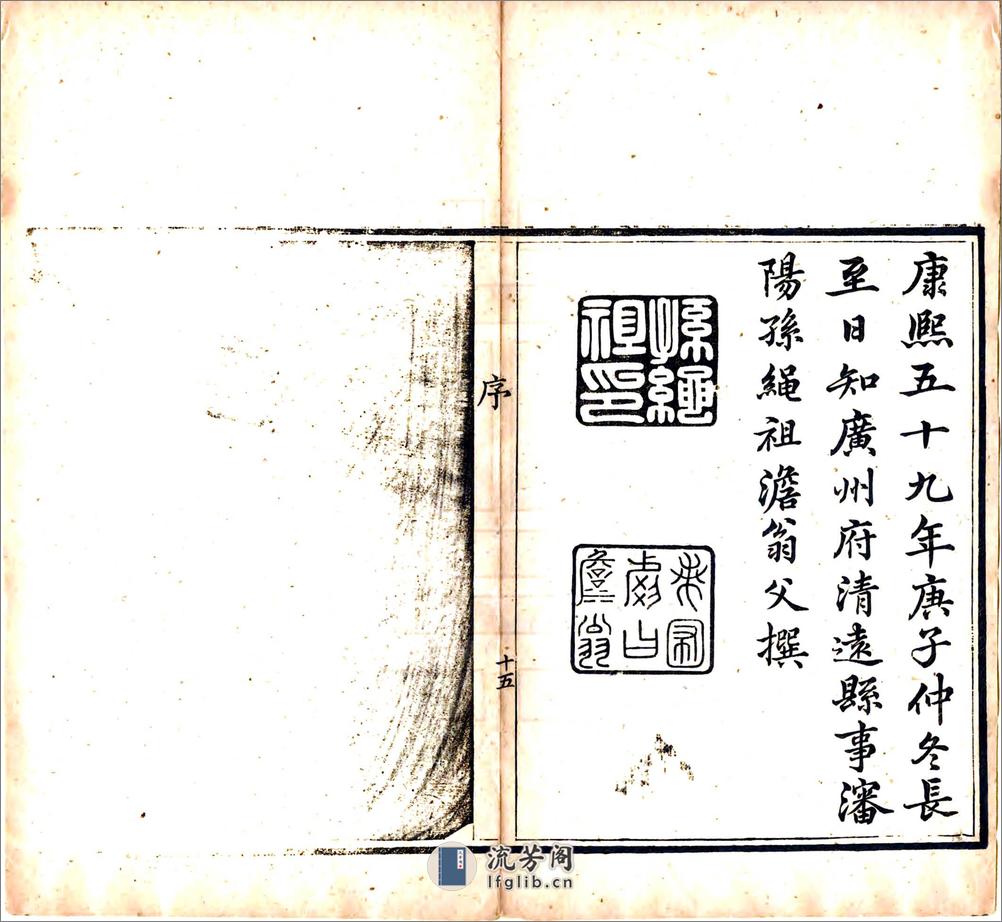 康熙五十九年庚子仲冬長
至日知廣州府清遠縣事瀋
陽孫繩祖澹翁父撰
孫繩
祖印
序
十五
流芳阁
lfglib.cn